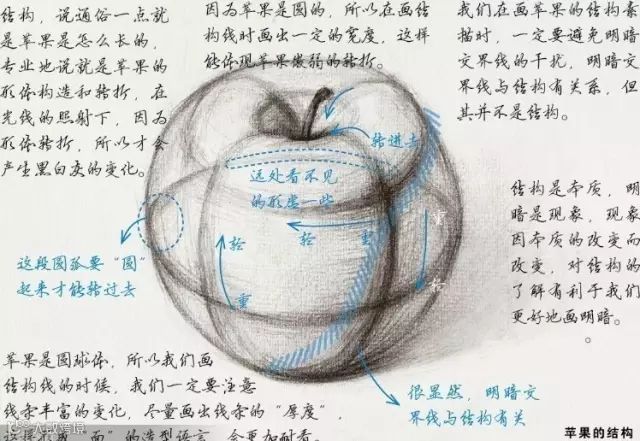 结构,说通俗一点就
是苹果是怎么长的,
专业地说就是苹果的
形体构造和转折,在
光线的照射下,因为
形体转折,所以才会
产生黑白灰的变化。
因为苹果是圆的,所以在画结
构线时画出一定的宽度,这样
能体现苹果微弱的转折。
我们在画苹果的结构素
描时,一定要避免明暗
交界线的干扰,明暗交
界线与结构有关系,但
其并不是结构。
转进去
远处看不见
的形虚一些
轻
重
轻
重
重
轻
这段圆弧要“圆”
起来才能转过去
结构是本质,明
暗是现象,现象
因本质的改变而
改变,对结构的
了解有利于我们
更好地画明暗。
苹果是圆球体,所以我们画
结构线的时候,我们一定要注意
线条丰富的变化,尽量画出线条的“厚度”,
“面”的造型语言,会更加耐看。
很显然,明暗交
界线与结构有关
苹果的结构